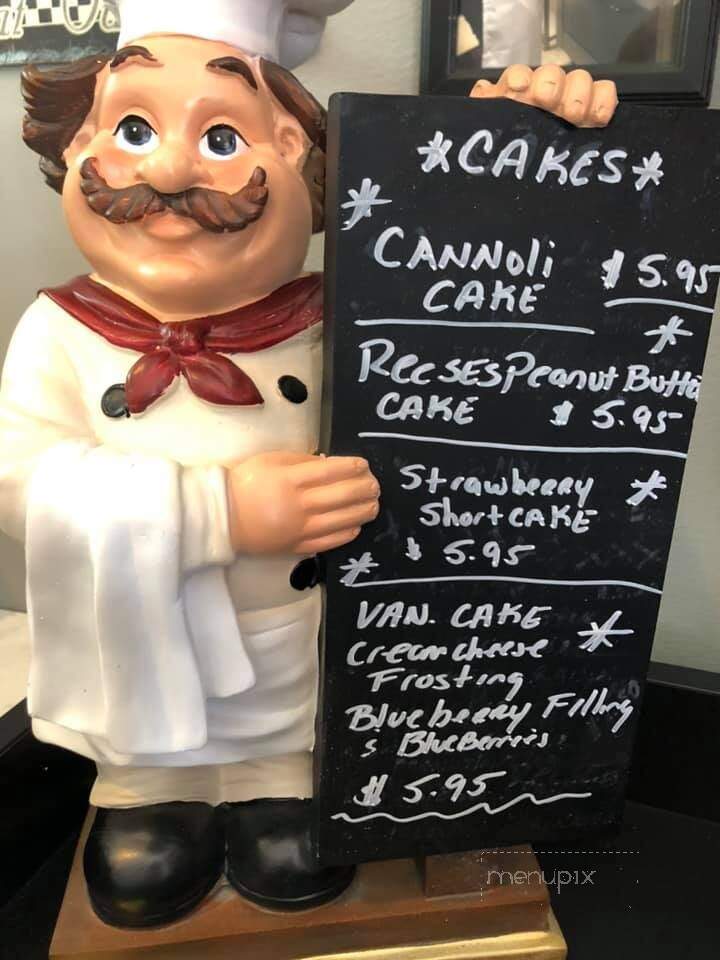 *CAKES*
*
CANNOli $5.95
CAKE
*
ReesesPeanut Butte
CAKE $5.95
Strawberry *
ShortCAKE
$5.95
*
VAN. CAKE *
Creamcheese
Frosting
Blueberry Filling
& BlueBerries
$5.95
menupix